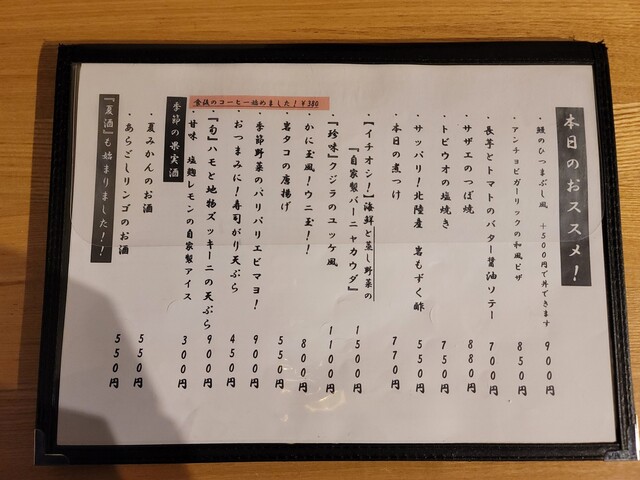 本日のおススメ！
・鰻のひつまぶし風　+500円で丼できます　900円
・アンチョビガーリックの和風ピザ　850円
・長芋とトマトのバター醤油ソテー　700円
・サザエのつぼ焼　880円
・トビウオの塩焼き　750円
・サッパリ！北陸産　岩もずく酢　550円
・本日の煮つけ　770円
・【イチオシ！】海鮮と蒸し野菜の
『自家製バーニャカウダ』　1500円
・『珍味』クジラのユッケ風　1100円
・かに玉風！ウニ玉！！　800円
・岩タコの唐揚げ　550円
・季節野菜のパリパリエビマヨ！　900円
・おつまみに！寿司がり天ぷら　450円
・『旬』ハモと地物ズッキーニの天ぷら　900円
・甘味　塩麹レモンの自家製アイス　300円
食後のコーヒー始めました！¥380
季節の果実酒
・夏みかんのお酒　550円
・あらごしリンゴのお酒　550円
『夏酒』も始まりました！！